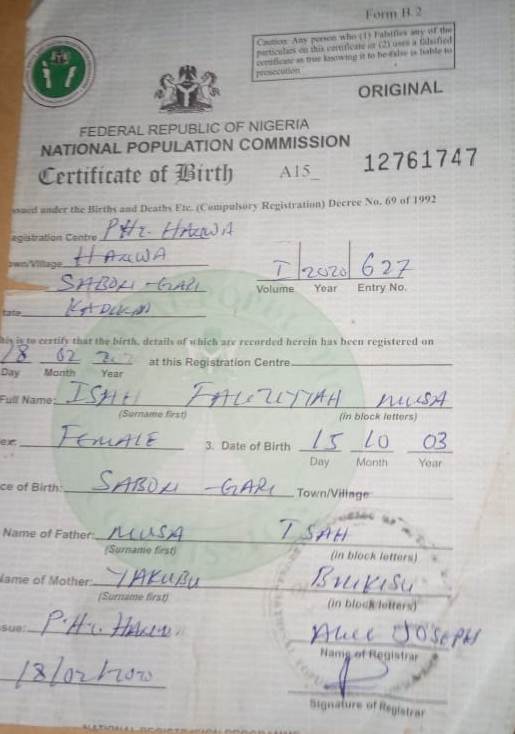 Form B.2
Caution: Any person who (1) Falsifies any of the
particulars on this certificate or (2) uses a falsified
certificate as true knowing it to be false is liable to
prosecution
ORIGINAL
FEDERAL REPUBLIC OF NIGERIA
NATIONAL POPULATION COMMISSION
Certificate of Birth A15_ 12761747
ssued under the Births and Deaths Etc. (Compulsory Registration) Decree No. 69 of 1992
egistration Centre PHC. HANWA
own/Village HANWA I 2020 627
Volume Year Entry No.
SABON-GARI
tate KADUNA
his is to certify that the birth, details of which are recorded herein has been registered on
18 02 at this Registration Centre
Day Month Year
Full Name: ISAH MUSA
(Surname first) (in block letters)
ex: FEMALE 3. Date of Birth 15 10 03
Day Month Year
ce of Birth: SABON-GARI Town/Village
Name of Father: MUSA ISAH
(Surname first) (in block letters)
Name of Mother: YAKUBU
(Surname first) (in block letters)
ssue: P.H.C. HANWA JOSEPH
Name of Registrar
18/02/2020
Signature of Registrar